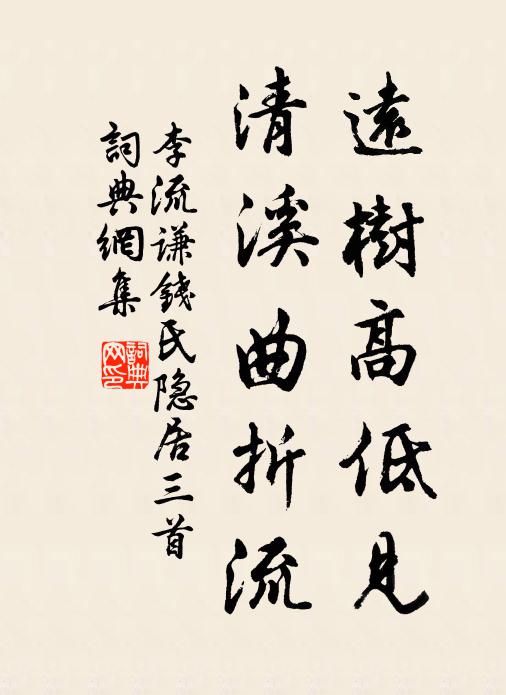 遠樹高低見
清溪曲折流
李流谦錢氏隐居三首
詞典網集
詞典
网印